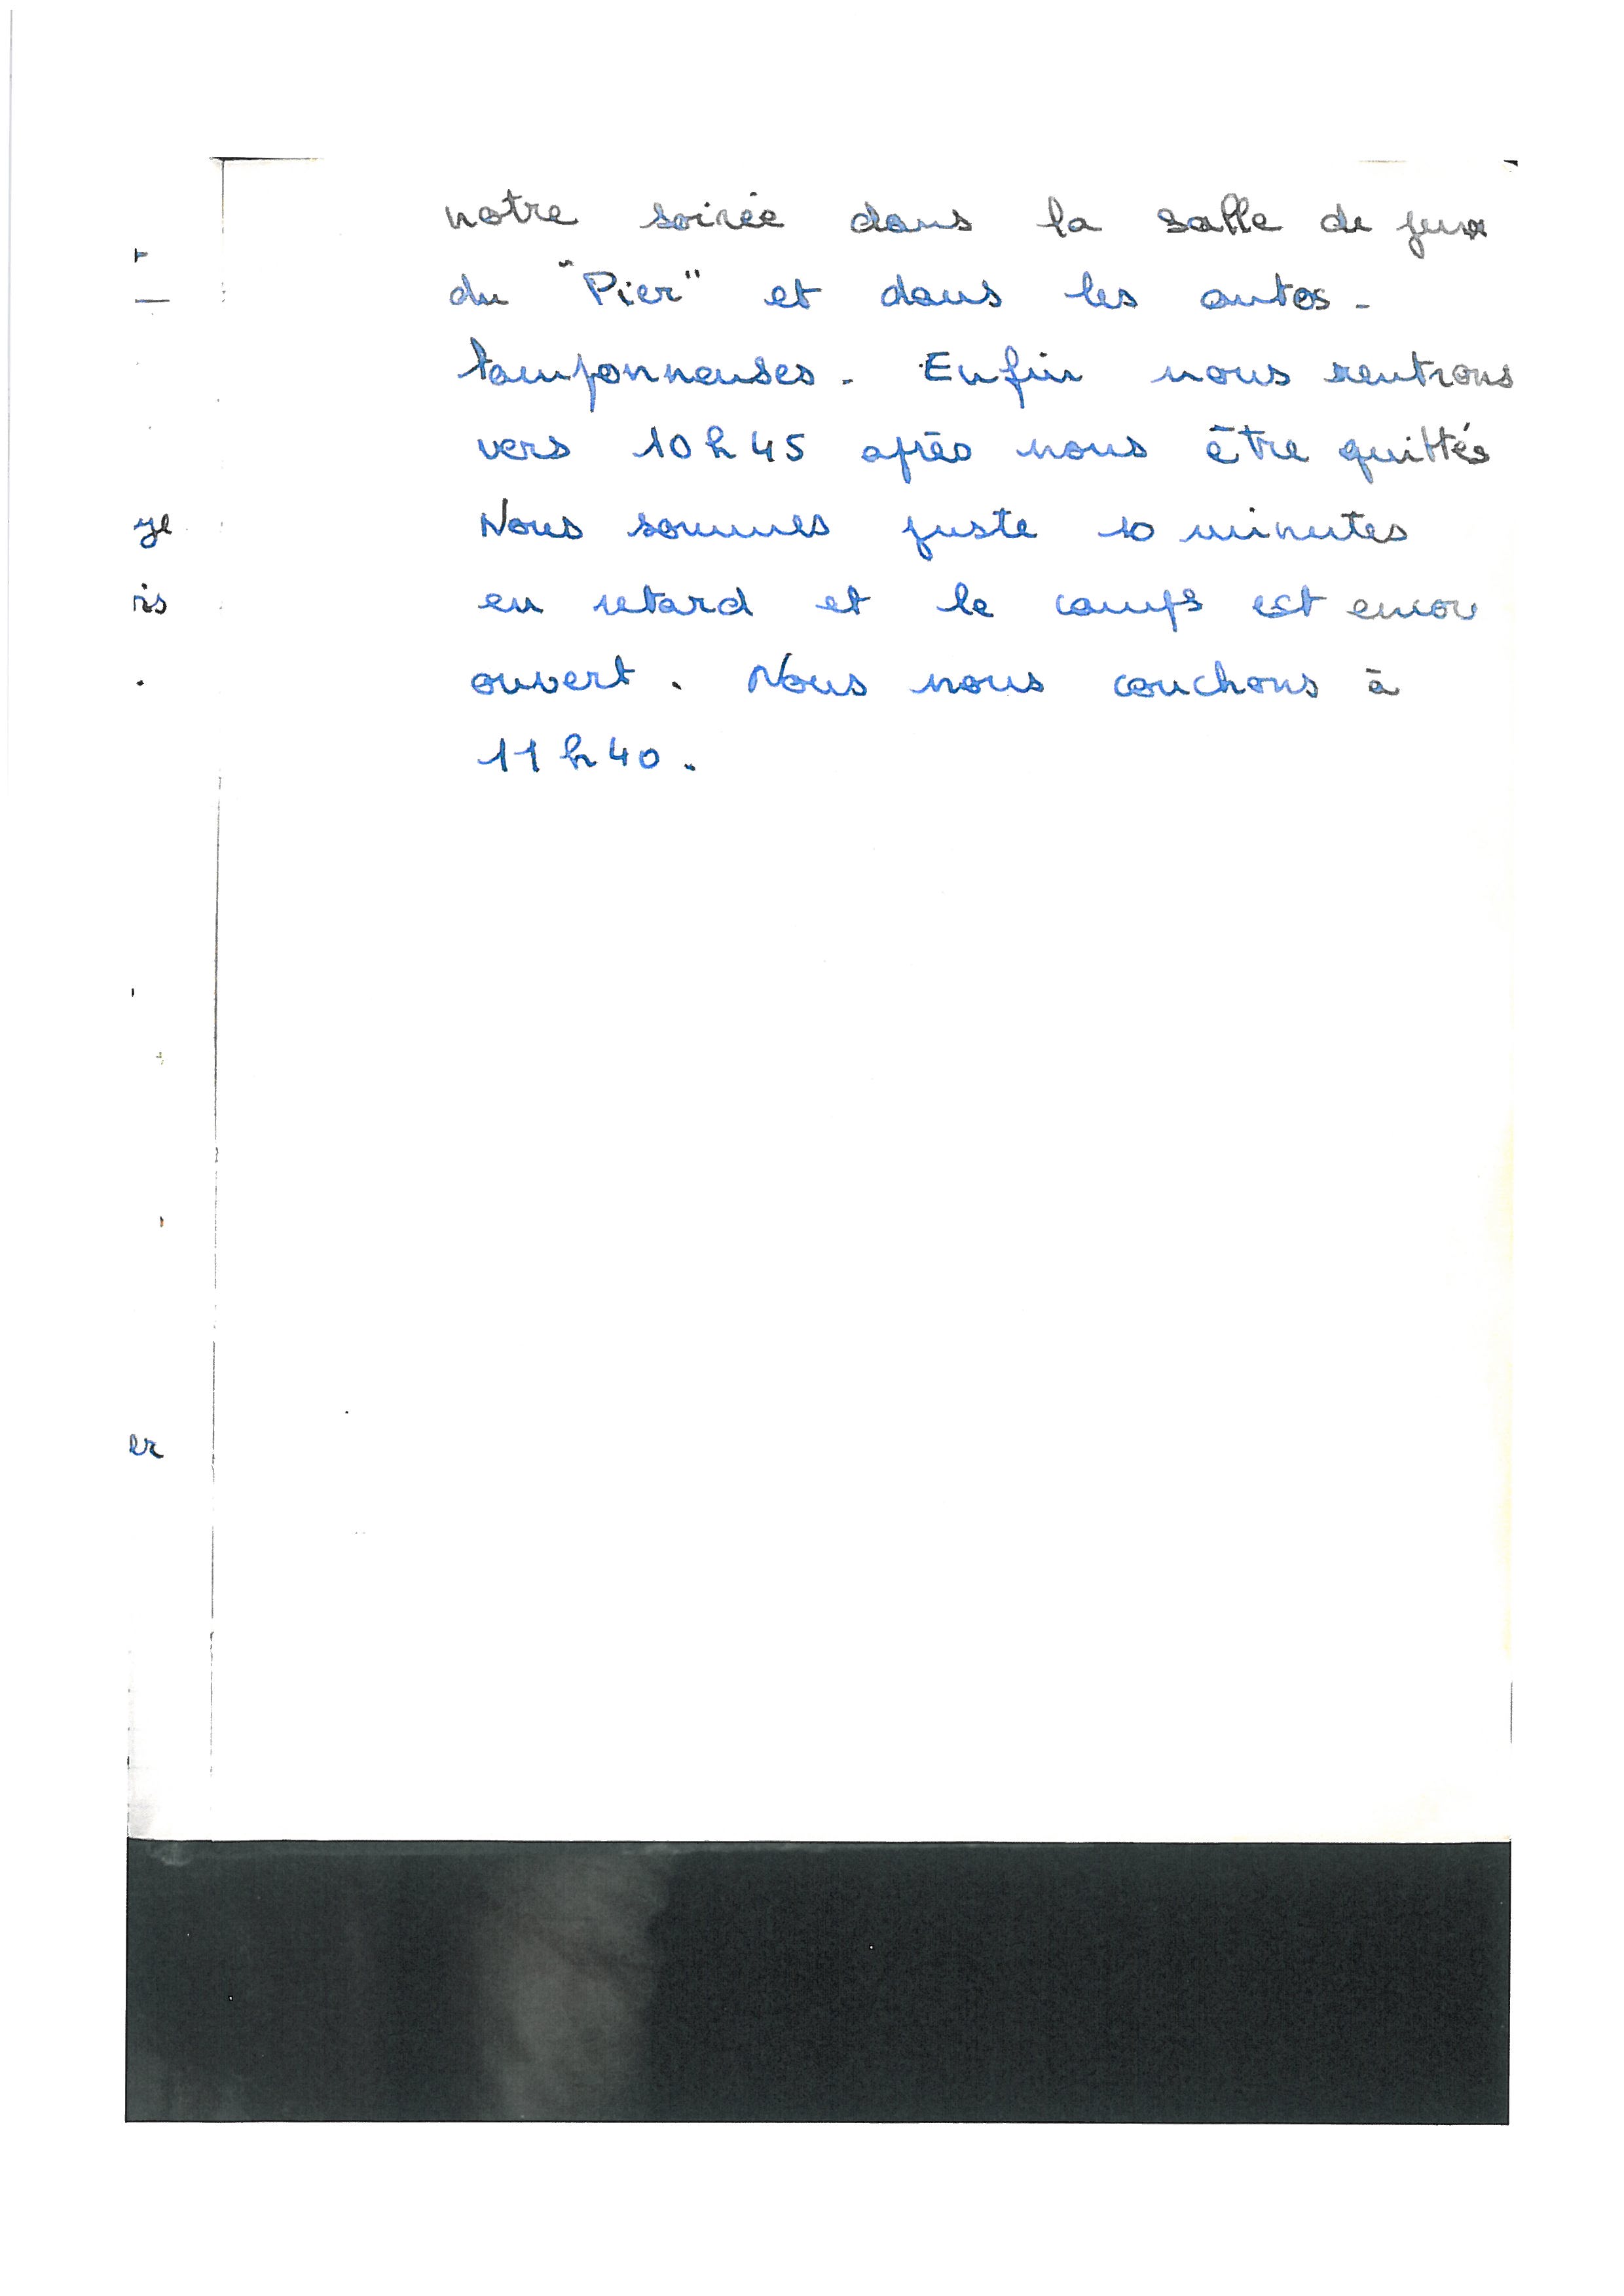 notre soirée dans la salle de jeux
du "Pier" et dans les autos-
tamponneuses. Enfin nous rentrons
vers 10h45 après nous être quittés
Nous sommes juste 10 minutes
en retard et le camps est encore
ouvert. Nous nous couchons à
11h40.
ye
is
er